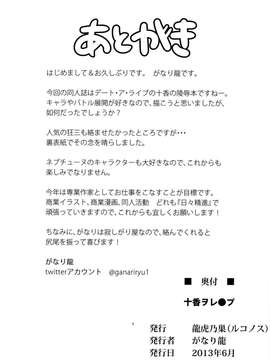 あとがき
はじめまして&お久しぶりです。 がなり龍です。
今回の同人誌はデート・ア・ライブの十香の陵辱本ですねー。
キャラやバトル展開が好きなので、描こうと思いましたが、
如何だったでしょうか?
人気の狂三も絡ませたかったところですが・・・
裏表紙でその念を晴らしました。
ネプチューヌのキャラクターも大好きなので、これからも
楽しみでなりません。
今年は専業作家としてお仕事をこなすことが目標です。
商業イラスト、商業漫画、同人活動 どれも『日々精進』で
頑張っていきますので、これからも宜しくお願いします!
ちなみに、がなりは寂しがり屋なので、絡んでくれると
尻尾を振って喜びます!
がなり龍
twitterアカウント @ganariryu1
■ 奥付 ■
十香ヲレ●プ
発行 龍虎乃巣(ルコノス)
発行者 がなり龍
発行日 2013年6月